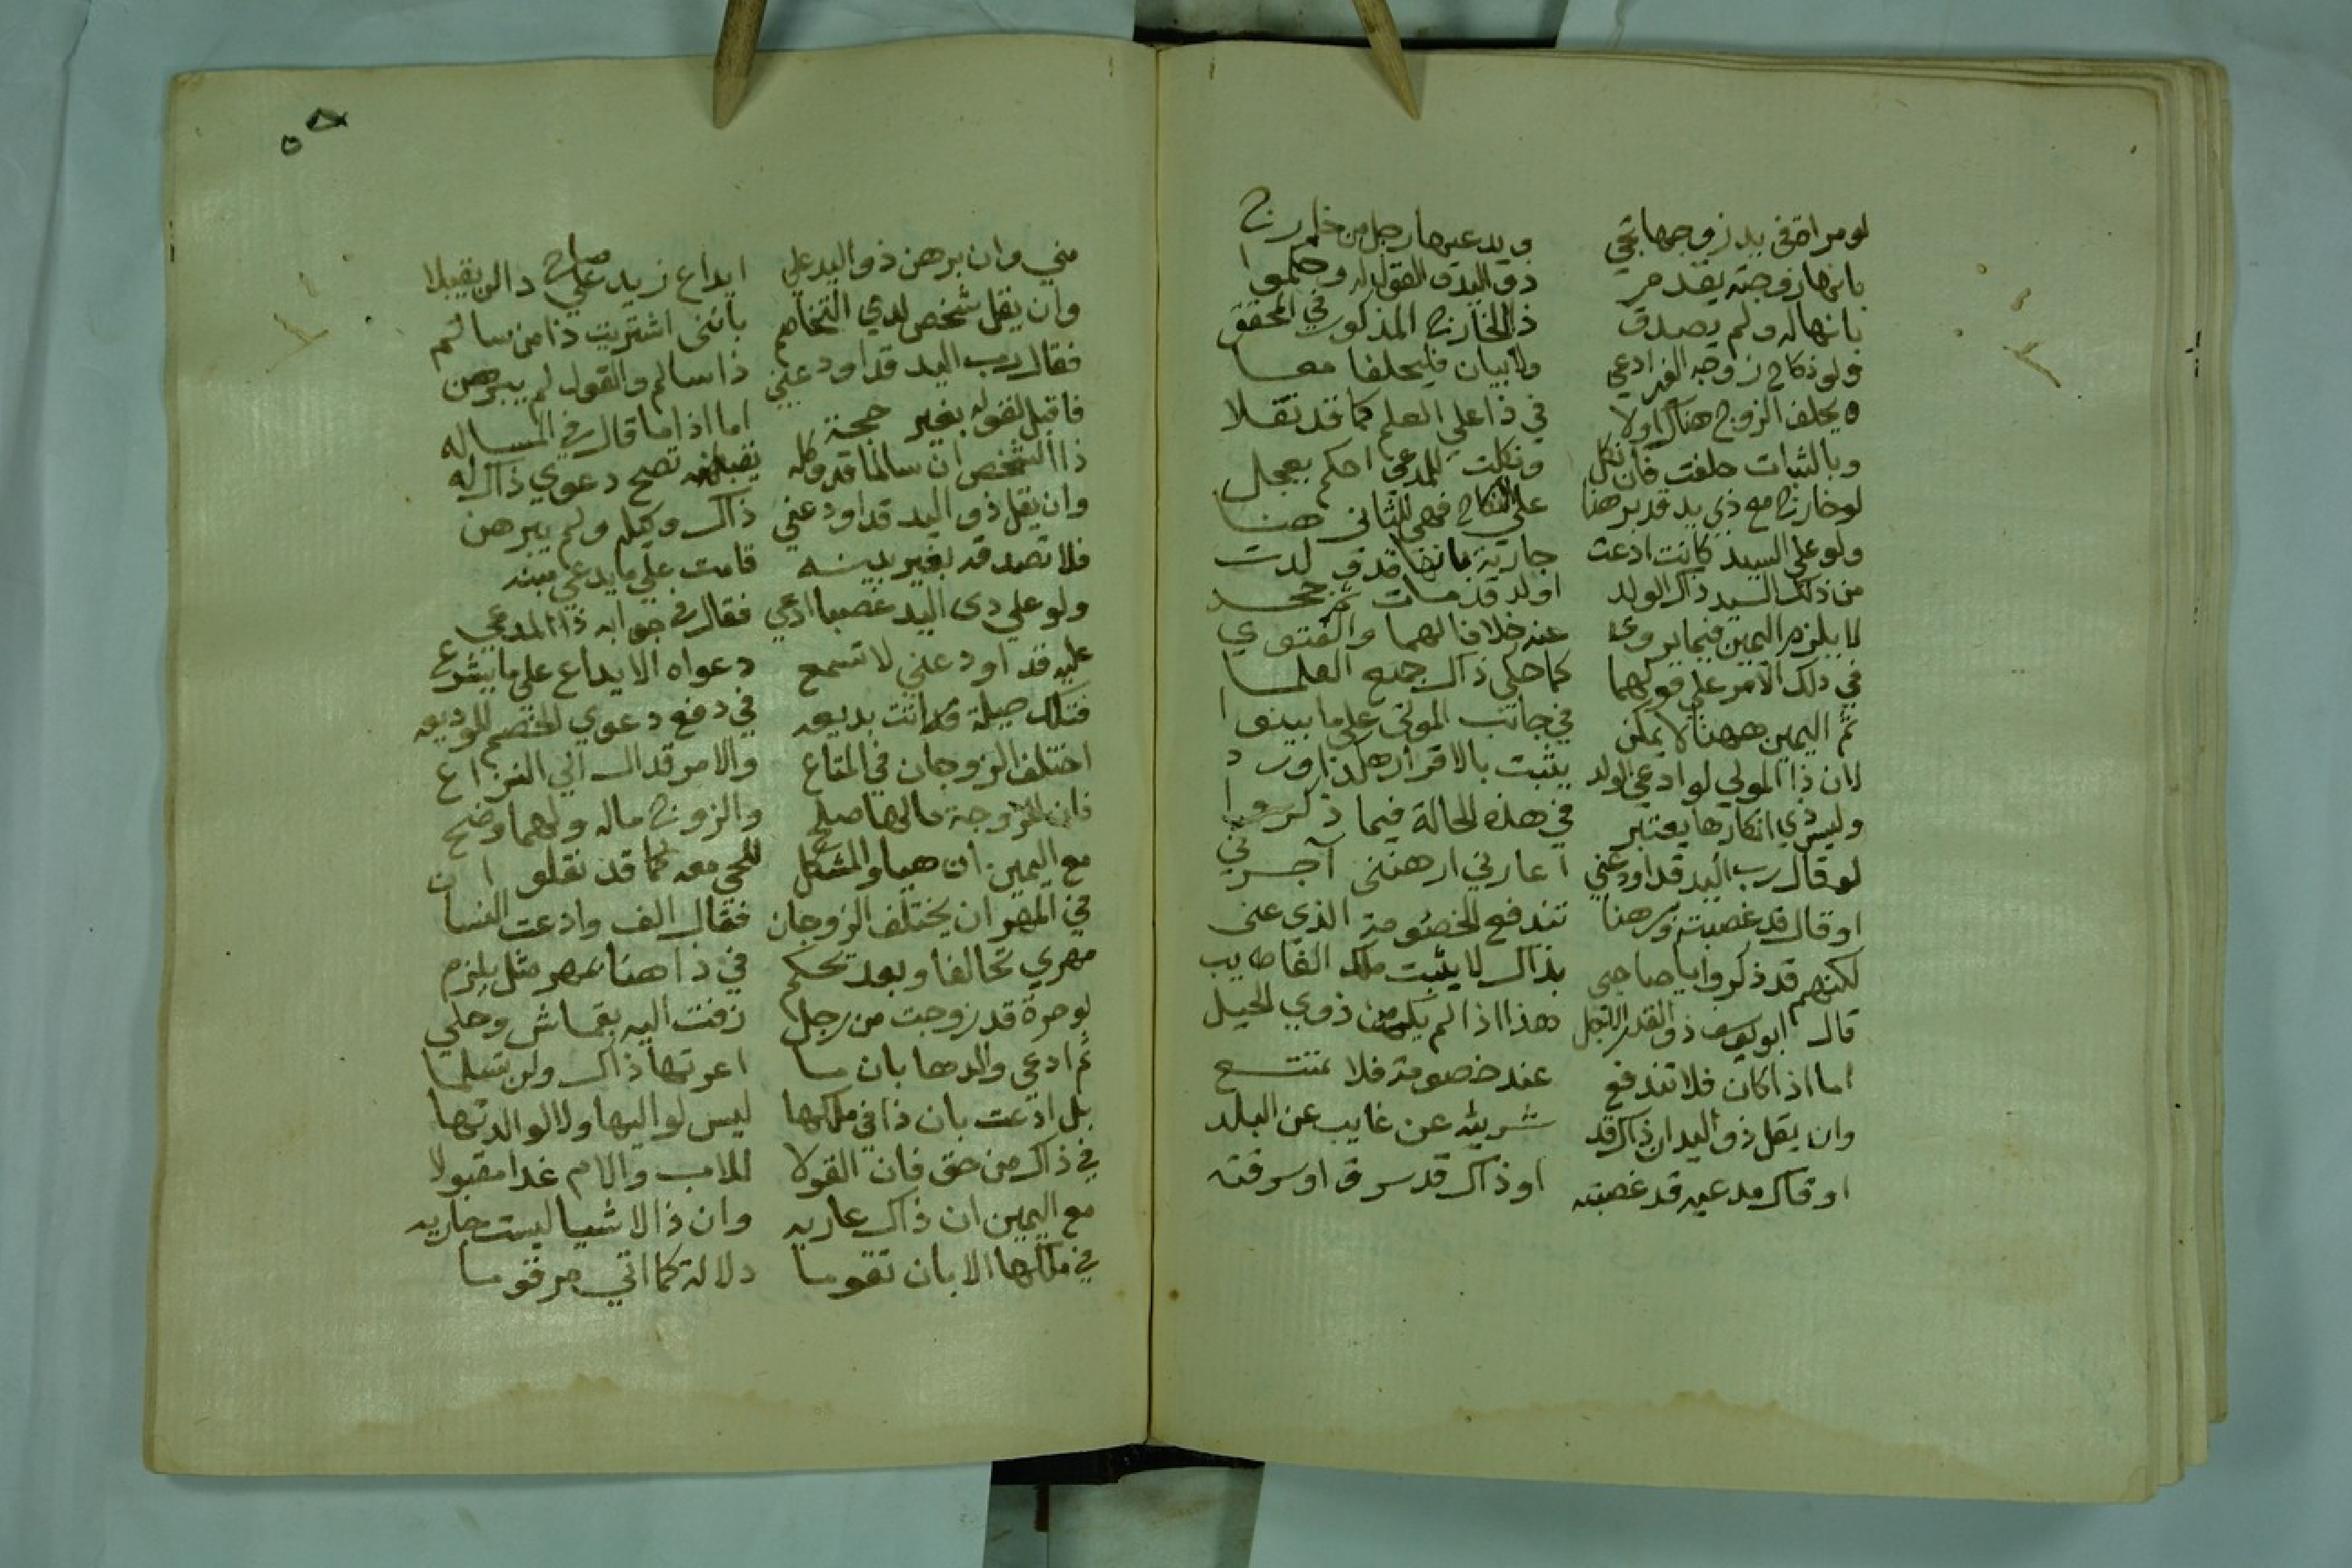 لو مراة في يد زوجها تجي ويدعيها رجل من خارج
بانها زوجته يقدم ذو اليد والقول له وحكموا
بانها له ولم يصدق ذا الخارج المذكور في المحقق
ولو نكاح زوجه الغير ادعي ولا بيان فليحلفا معا
يحلف الزوج هناك اولا في ذا علي العلم كما قد نقلا
وبالثبات حلفت فان نكل ونكلت للمدعي احكم بعجل
لو خارج مع ذي يد قد برهنا علي النكاح فهي للثاني هنا
ولو علي السيد كانت ادعت جارية بانها قد ولدت
من ذلك السيد ذاك الولد او لد قد مات ثم جحد
لا يلزم اليمين فيما يروي عنه خلافا لهما والفتوي
في ذلك الامر علي قولهما كما حكي ذاك جميع العلما
ثم اليمين ههنا لا يمكن في جانب المولي علي ما بينوا
لان ذا المولي لو ادعي الولد يثبت بالاقرار هكذا ورد
وليس ذي انكارها يعتبر في هذه الحالة فيما ذكروا
لو قال رب اليد قد اودعني اعارني ارهنني آجرني
او قال قد غصبته وبرهنا تندفع الخصومة الذي عني
لكنهم قد ذكروا يا صاحبي بذاك لا يثبت ملك الغايب
قال ابو يوسف ذو القدر الاجل هذا اذا لم يكن من ذوي الحيل
اما اذا كان فلا تندفع عند خصومة فلا تمتنع
وان يقل ذو اليد ان ذاك قد شريته عن غايب عن البلد
او قال مدعيه قد غصبته او ذاك قد سرق او سرقته
٥٨
مني وان برهن ذو اليد علي ايداع زيد صاح ذا لن يقبلا
وان يقل شخص لدي التخاصم بانني اشتريت ذا من سالم
فقال رب اليد قد اودعني ذا سالم والقول لم يبرهن
فاقبل لقوله بغير حجة اما اذا ما قال في المساله
ذا الشخص ان سالما قد وكله بقبضه تصح دعوي ذاك له
وان يقل ذو اليد قد اودعني ذاك وكيله ولم يبرهن
فلا تصدقه بغير بينه قامت علي ما يدعي مبينه
ولو علي ذي اليد غصبا ادعي فقال في جوابه ذا المدعي
عليه قد اودعني لا تسمع دعواه الايداع علي ما يشرع
فتلك حيلة قد اتت بديعه في دفع دعوي الخصم للوديعه
اختلف الزوجان في المتاع والامر قد ال الي النزاع
فان للزوجة ما لها صلح والزوج ماله ولهما وضح
مع اليمين ان هما والمشكل للحي معه كما قد نقلوا ان
في المهر ان يختلف الزوجان فقال الف وادعت الفان
مهري تحالفا وبعد تحكم في ذا هنا بمهر مثل يلزم
لو حرة قد زوجت من رجل زفت اليه بقماش وحلي
ثم ادعي والدها بان ما اعرتها ذاك ولن تسلما
بل ادعت بان ذا في ملكها ليس لوالدها ولا لوالدتها
في ذاك من حق فان القولا للاب والام غدا مقبولا
مع اليمين ان ذاك عاريه وان ذا الاشيا ليست جاريه
في ملكها الا بان تقوما دلالة كما اتي مرقوما